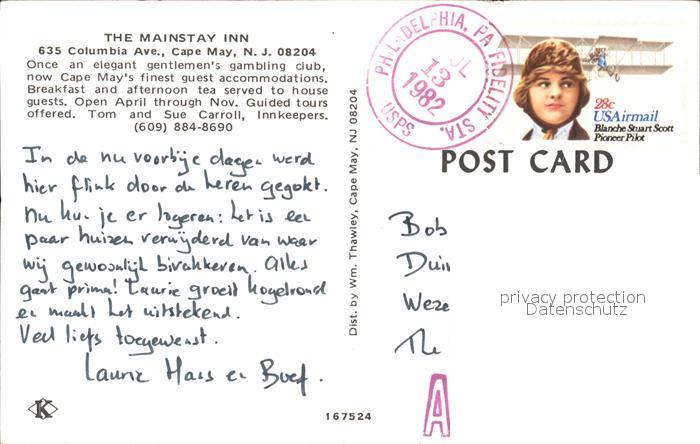 THE MAINSTAY INN
635 Columbia Ave., Cape May, N. J. 08204
Once an elegant gentlemen's gambling club,
now Cape May's finest guest accommodations.
Breakfast and afternoon tea served to house
guests. Open April through Nov. Guided tours
offered. Tom and Sue Carroll, Innkeepers.
(609) 884-8690
In de nu voorbije dagen werd
hier flink door de heren gegokt.
Nu kun je er logeren: het is een
paar huizen verwijderd van waar
wij gewoonlijk bivakkeren. Alles
gaat prima! Laurie groeit kogelrond
en maakt het uitstekend.
Veel liefs toegewenst.
Laurie Hans en Boef.
K
167524
Dist. by Wm. Thawley, Cape May, NJ 08204
PHILADELPHIA, PA FIDELITY STA.
JL
13
1982
USPS
28c
USAirmail
Blanche Stuart Scott
Pioneer Pilot
POST CARD
Bob
Duin
Weze
The
privacy protection
Datenschutz
A